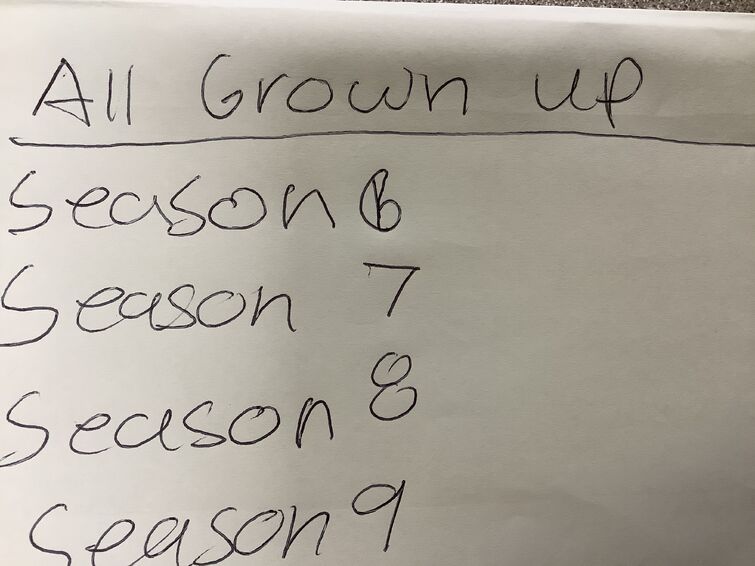 All Grown up
Season 6
Season 7
Season 8
Season 9